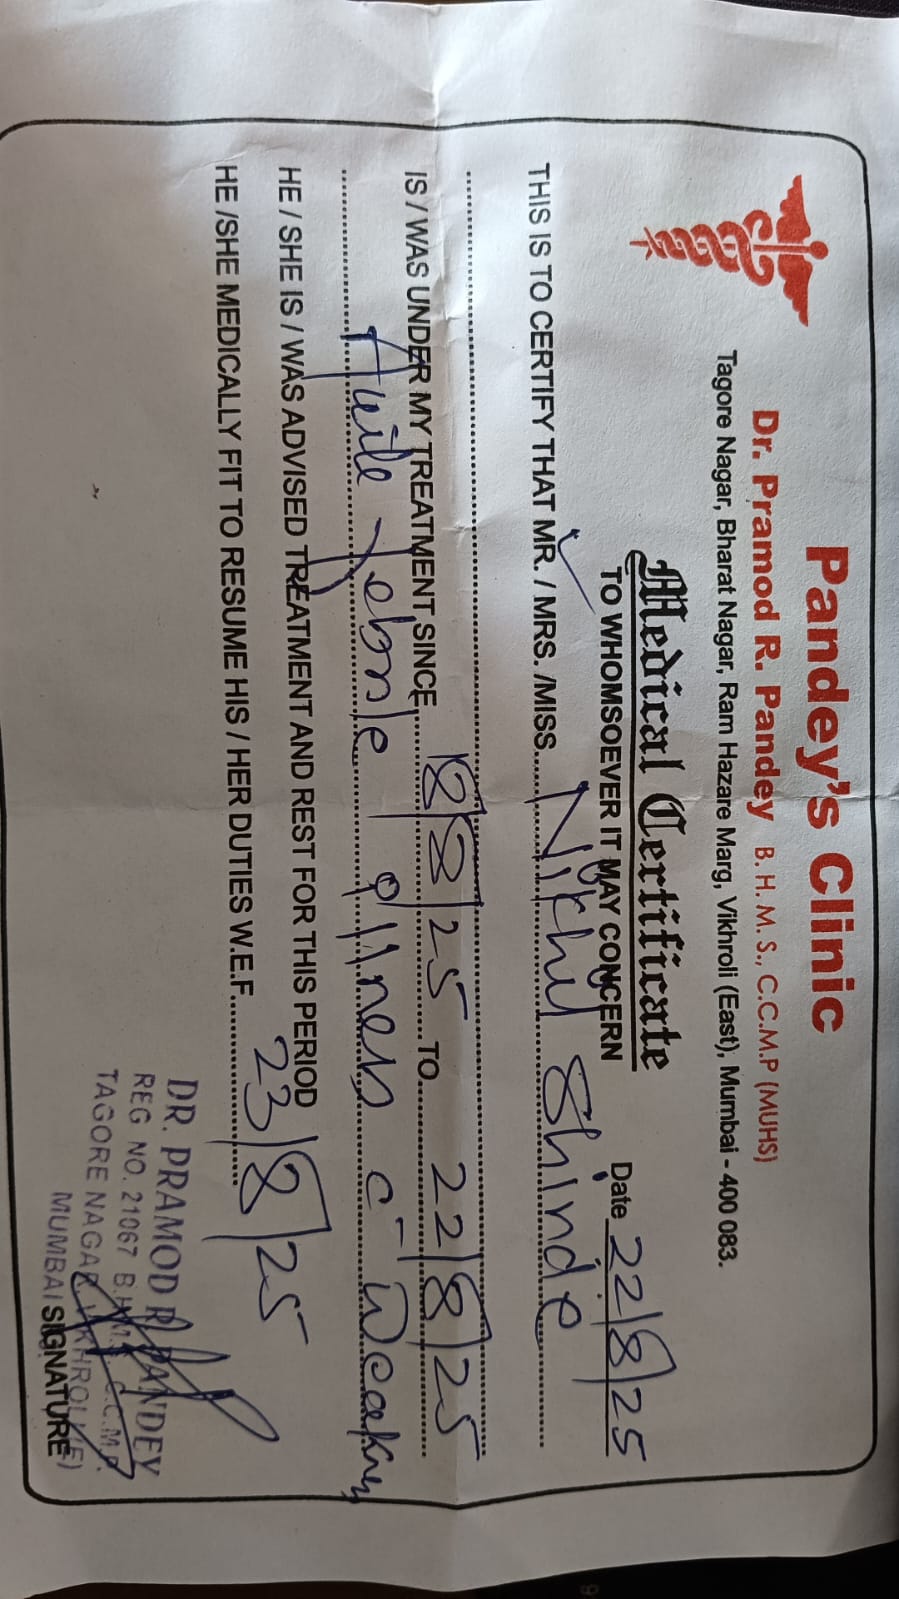 Pandey's Clinic
Dr. Pramod R. Pandey B. H. M. S., C.C.M.P (MUHS)
Tagore Nagar, Bharat Nagar, Ram Hazare Marg, Vikhroli (East), Mumbai - 400 083.
Medical Certificate
TO WHOMSOEVER IT MAY CONCERN
Date 22/8/25
THIS IS TO CERTIFY THAT MR. / MRS. /MISS. Nikhil Shinde
IS / WAS UNDER MY TREATMENT SINCE 18/8/25 TO 22/8/25
Acute Febrile illness c̄
HE / SHE IS / WAS ADVISED TREATMENT AND REST FOR THIS PERIOD
HE /SHE MEDICALLY FIT TO RESUME HIS / HER DUTIES W.E.F. 23/8/25
DR. PRAMOD R. PANDEY
REG NO. 21067 B.H.M.S. C.C.M.P.
TAGORE NAGAR, VIKHROLI (E)
MUMBAI
SIGNATURE